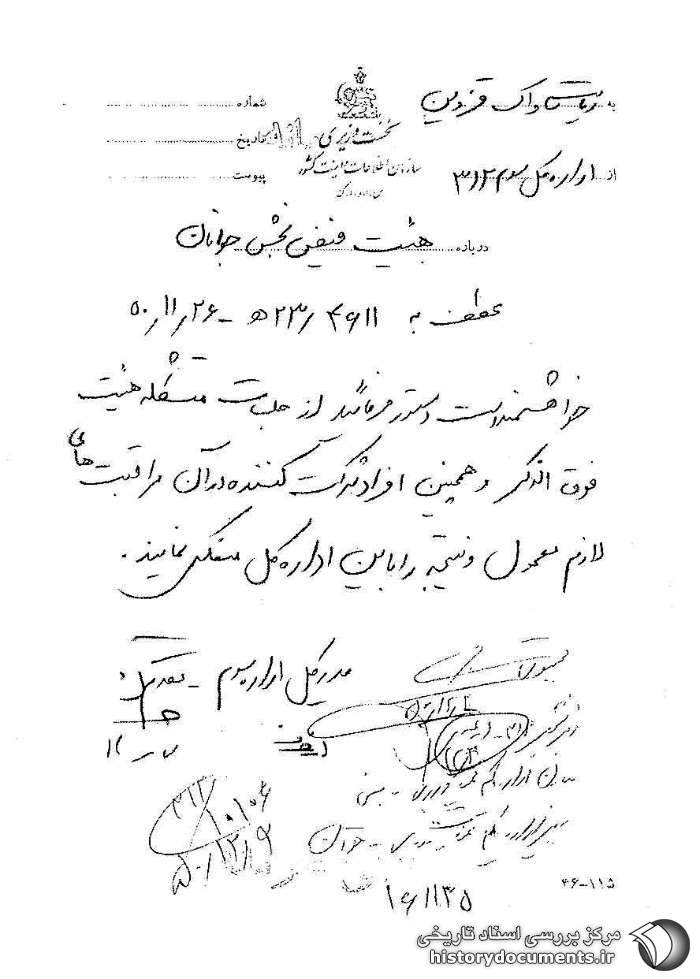 به ریاست ساواک قزوین
نخست وزیری
سازمان اطلاعات و امنیت کشور
س.ا.و.ا.ک
شماره
تاریخ
پیوست
از اداره کل سوم ۳۱۲
درباره هیئت فیض بخش جوانان
عطف به ۴۶۱۱ /۲۳ﻫ - ۵۰/۱۱/۲۶
خواهشمند است دستور فرمائید از جلسات متشکله هیئت
فوق الذکر و همچنین افراد شرکت کننده در آن مراقبت های
لازم معمول و نتیجه را باین اداره کل منعکس نمایند.
مدیر کل اداره سوم - مقدم
۳۱۲
۱۰۱۰۶
۵۰/۱۲/۹
۱۶۱۱۳۵
۴۶-۱۱۵
مرکز بررسی اسناد تاریخی
historydocuments.ir